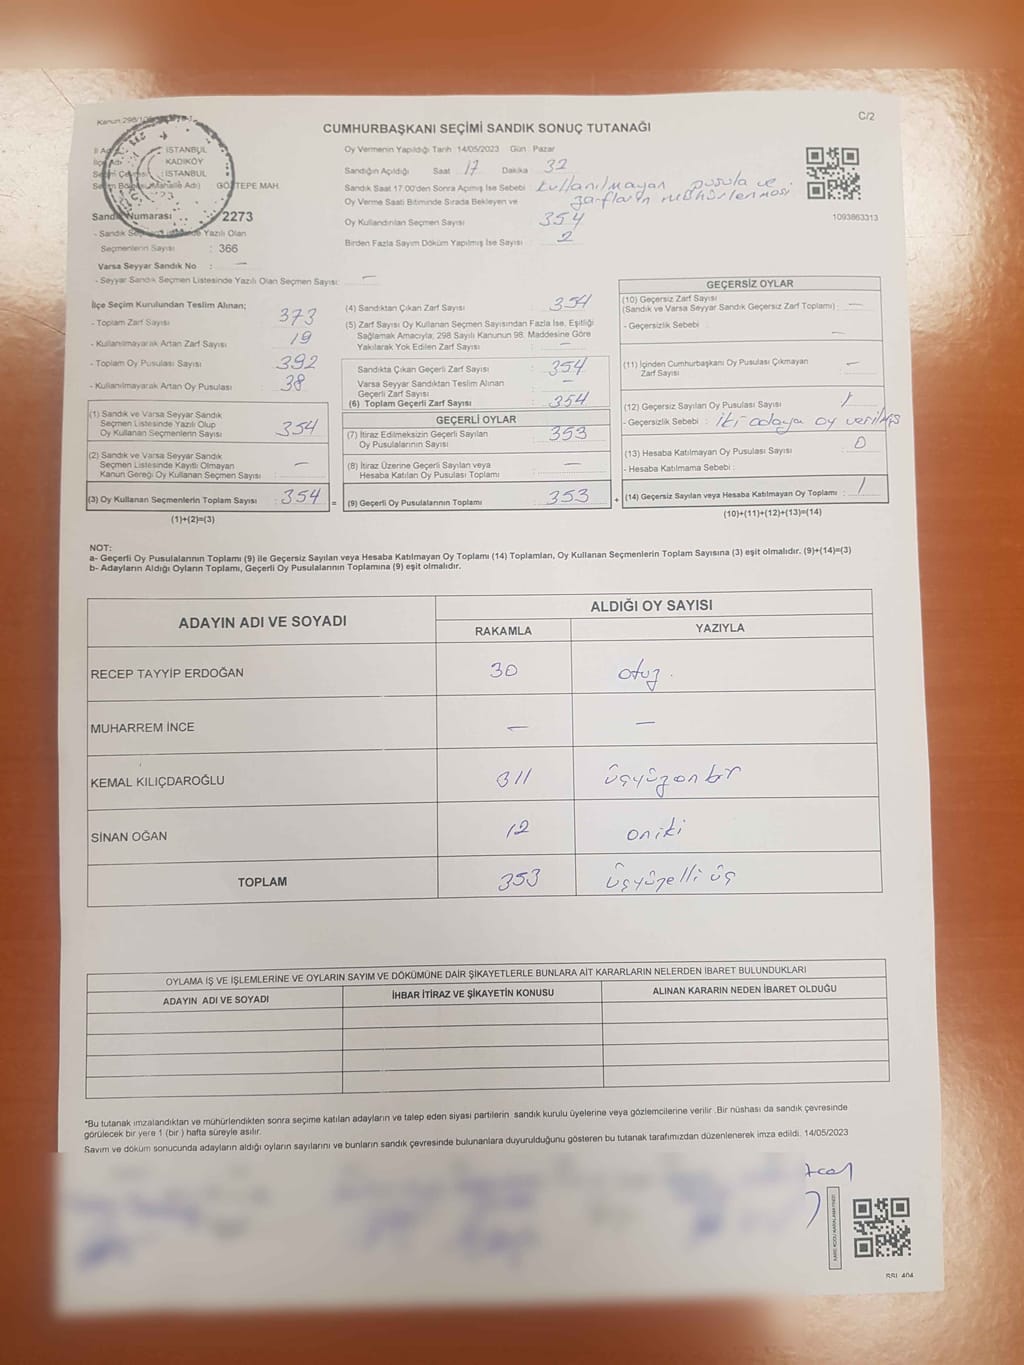 C/2
CUMHURBAŞKANI SEÇİMİ SANDIK SONUÇ TUTANAĞI
İSTANBUL
KADIKÖY
: İSTANBUL
GÖZTEPE MAH.
Sandık Numarası 2273
- Sandık Seçmen Listesinde Yazılı Olan
Seçmenlerin Sayısı : 366
Varsa Seyyar Sandık No : —
- Seyyar Sandık Seçmen Listesinde Yazılı Olan Seçmen Sayısı: —
Oy Vermenin Yapıldığı Tarih 14/05/2023 Gün Pazar
Sandığın Açıldığı Saat 17 Dakika 32
Sandık Saat 17.00'den Sonra Açılmış İse Sebebi : kullanılmayan pusula ve
zarfların mühürlenmesi
Oy Verme Saati Bitiminde Sırada Bekleyen ve
Oy Kullandırılan Seçmen Sayısı 354
Birden Fazla Sayım Döküm Yapılmış İse Sayısı 2
1093863313
İlçe Seçim Kurulundan Teslim Alınan;
- Toplam Zarf Sayısı 373
- Kullanılmayarak Artan Zarf Sayısı 19
- Toplam Oy Pusulası Sayısı 392
- Kullanılmayarak Artan Oy Pusulası 38
(1) Sandık ve Varsa Seyyar Sandık
Seçmen Listesinde Yazılı Olup
Oy Kullanan Seçmenlerin Sayısı 354
(2) Sandık ve Varsa Seyyar Sandık
Seçmen Listesinde Kayıtlı Olmayan
Kanun Gereği Oy Kullanan Seçmen Sayısı —
(3) Oy Kullanan Seçmenlerin Toplam Sayısı : 354 =
(1)+(2)=(3)
(4) Sandıktan Çıkan Zarf Sayısı 354
(5) Zarf Sayısı Oy Kullanan Seçmen Sayısından Fazla İse, Eşitliği
Sağlamak Amacıyla; 298 Sayılı Kanunun 98. Maddesine Göre
Yakılarak Yok Edilen Zarf Sayısı : —
Sandıkta Çıkan Geçerli Zarf Sayısı 354
Varsa Seyyar Sandıktan Teslim Alınan
Geçerli Zarf Sayısı —
(6) Toplam Geçerli Zarf Sayısı : 354
GEÇERLİ OYLAR
(7) İtiraz Edilmeksizin Geçerli Sayılan
Oy Pusulalarının Sayısı 353
(8) İtiraz Üzerine Geçerli Sayılan veya
Hesaba Katılan Oy Pusulası Toplamı —
(9) Geçerli Oy Pusulalarının Toplamı : 353 +
GEÇERSİZ OYLAR
(10) Geçersiz Zarf Sayısı
(Sandık ve Varsa Seyyar Sandık Geçersiz Zarf Toplamı) : —
- Geçersizlik Sebebi : —
(11) İçinden Cumhurbaşkanı Oy Pusulası Çıkmayan
Zarf Sayısı —
(12) Geçersiz Sayılan Oy Pusulası Sayısı : 1
- Geçersizlik Sebebi : İki adaya oy verilmiş
(13) Hesaba Katılmayan Oy Pusulası Sayısı : 0
- Hesaba Katılmama Sebebi :
(14) Geçersiz Sayılan veya Hesaba Katılmayan Oy Toplamı : 1
(10)+(11)+(12)+(13)=(14)
NOT:
a- Geçerli Oy Pusulalarının Toplamı (9) ile Geçersiz Sayılan veya Hesaba Katılmayan Oy Toplamı (14) Toplamları, Oy Kullanan Seçmenlerin Toplam Sayısına (3) eşit olmalıdır. (9)+(14)=(3)
b- Adayların Aldığı Oyların Toplamı, Geçerli Oy Pusulalarının Toplamına (9) eşit olmalıdır.
ADAYIN ADI VE SOYADI ALDIĞI OY SAYISI
RAKAMLA YAZIYLA
RECEP TAYYİP ERDOĞAN 30 otuz.
MUHARREM İNCE — —
KEMAL KILIÇDAROĞLU 311 üçyüzonbir
SİNAN OĞAN 12 oniki
TOPLAM 353 üçyüzelli üç
OYLAMA İŞ VE İŞLEMLERİNE VE OYLARIN SAYIM VE DÖKÜMÜNE DAİR ŞİKAYETLERLE BUNLARA AİT KARARLARIN NELERDEN İBARET BULUNDUKLARI
ADAYIN ADI VE SOYADI İHBAR İTİRAZ VE ŞİKAYETİN KONUSU ALINAN KARARIN NEDEN İBARET OLDUĞU
*Bu tutanak imzalandıktan ve mühürlendikten sonra seçime katılan adayların ve talep eden siyasi partilerin sandık kurulu üyelerine veya gözlemcilerine verilir .Bir nüshası da sandık çevresinde
görülecek bir yere 1 (bir ) hafta süreyle asılır.
Sayım ve döküm sonucunda adayların aldığı oyların sayılarını ve bunların sandık çevresinde bulunanlara duyurulduğunu gösteren bu tutanak tarafımızdan düzenlenerek imza edildi. 14/05/2023